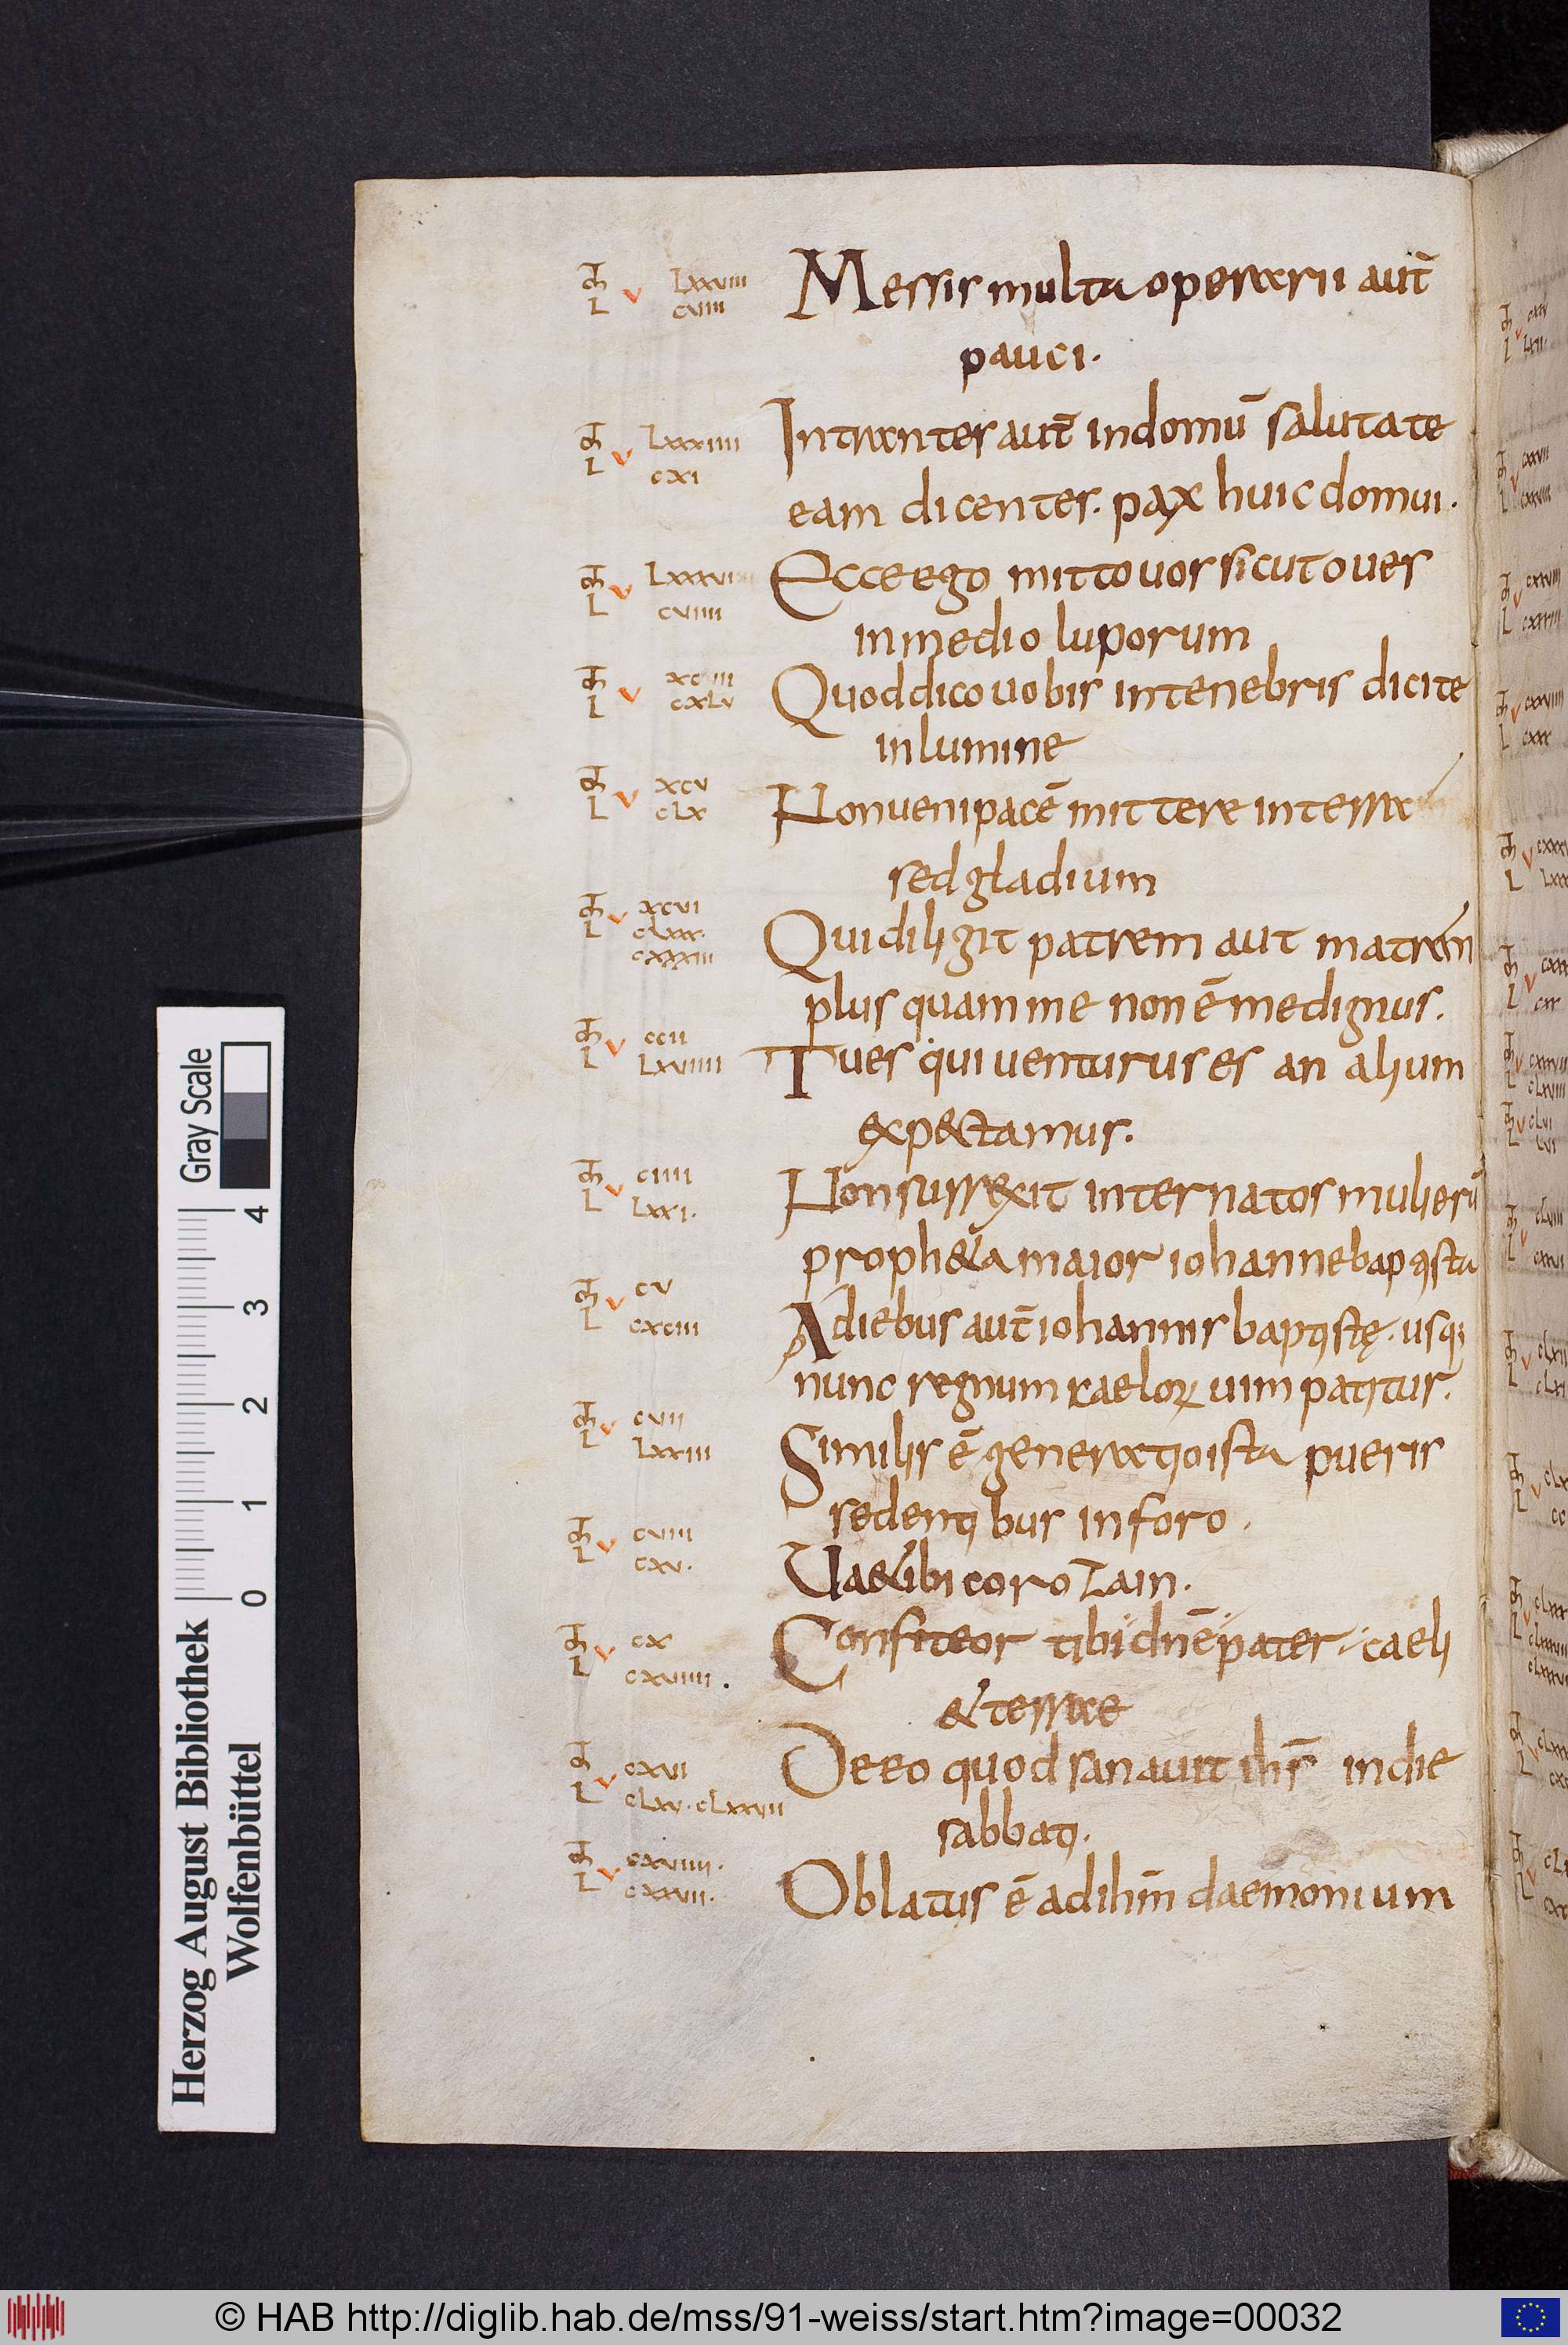 Mt L v Lxxviii cviiii Messis multa operarii aut̄
pauci.
Mt L v Lxxxiiii cxi Intrantes aut̄ indomū salutate
eam dicentes. pax huic domui.
Mt L v Lxxxvi cviiii Ecce ego mitto uos sicut oues
inmedio luporum
Mt L v cxLv Quod dico uobis intenebris dicite
inlumine
Mt L v xcv cLx Non ueni pacē mittere interra
sed gladium
Mt L v xcvi cLxxx. cxxxiii Qui diligit patrem aut matrem
plus quam me non ē me dignus.
Mt L v ccii Lxviiii Tu es qui uenturus es an alium
expectamus.
Mt L v ciiii Lxxi. Non surrexit inter natos mulierū
propheta maior iohanne baptista
Mt L v cv cxciii A diebus aut̄ iohannis baptistę. usq;
nunc regnum caeloꝝ uim patitur.
Mt L v cvii Lxxiii Similis ē generatio ista pueris
sedentibus inforo.
Mt L v cviii cxv. Uae tibi corozain.
Mt L v cx cxviiii. Confiteor tibi dn̄e pater caeli
& terrae
Mt L v cxvi cLxv. cLxxvii De eo quod sanauit ihs̄ indie
sabbati.
Mt L v cxviiii. cxxvii. Oblatus ē ad ihm̄ daemonium
Gray Scale
0 1 2 3 4
Herzog August Bibliothek
Wolfenbüttel
© HAB http://diglib.hab.de/mss/91-weiss/start.htm?image=00032